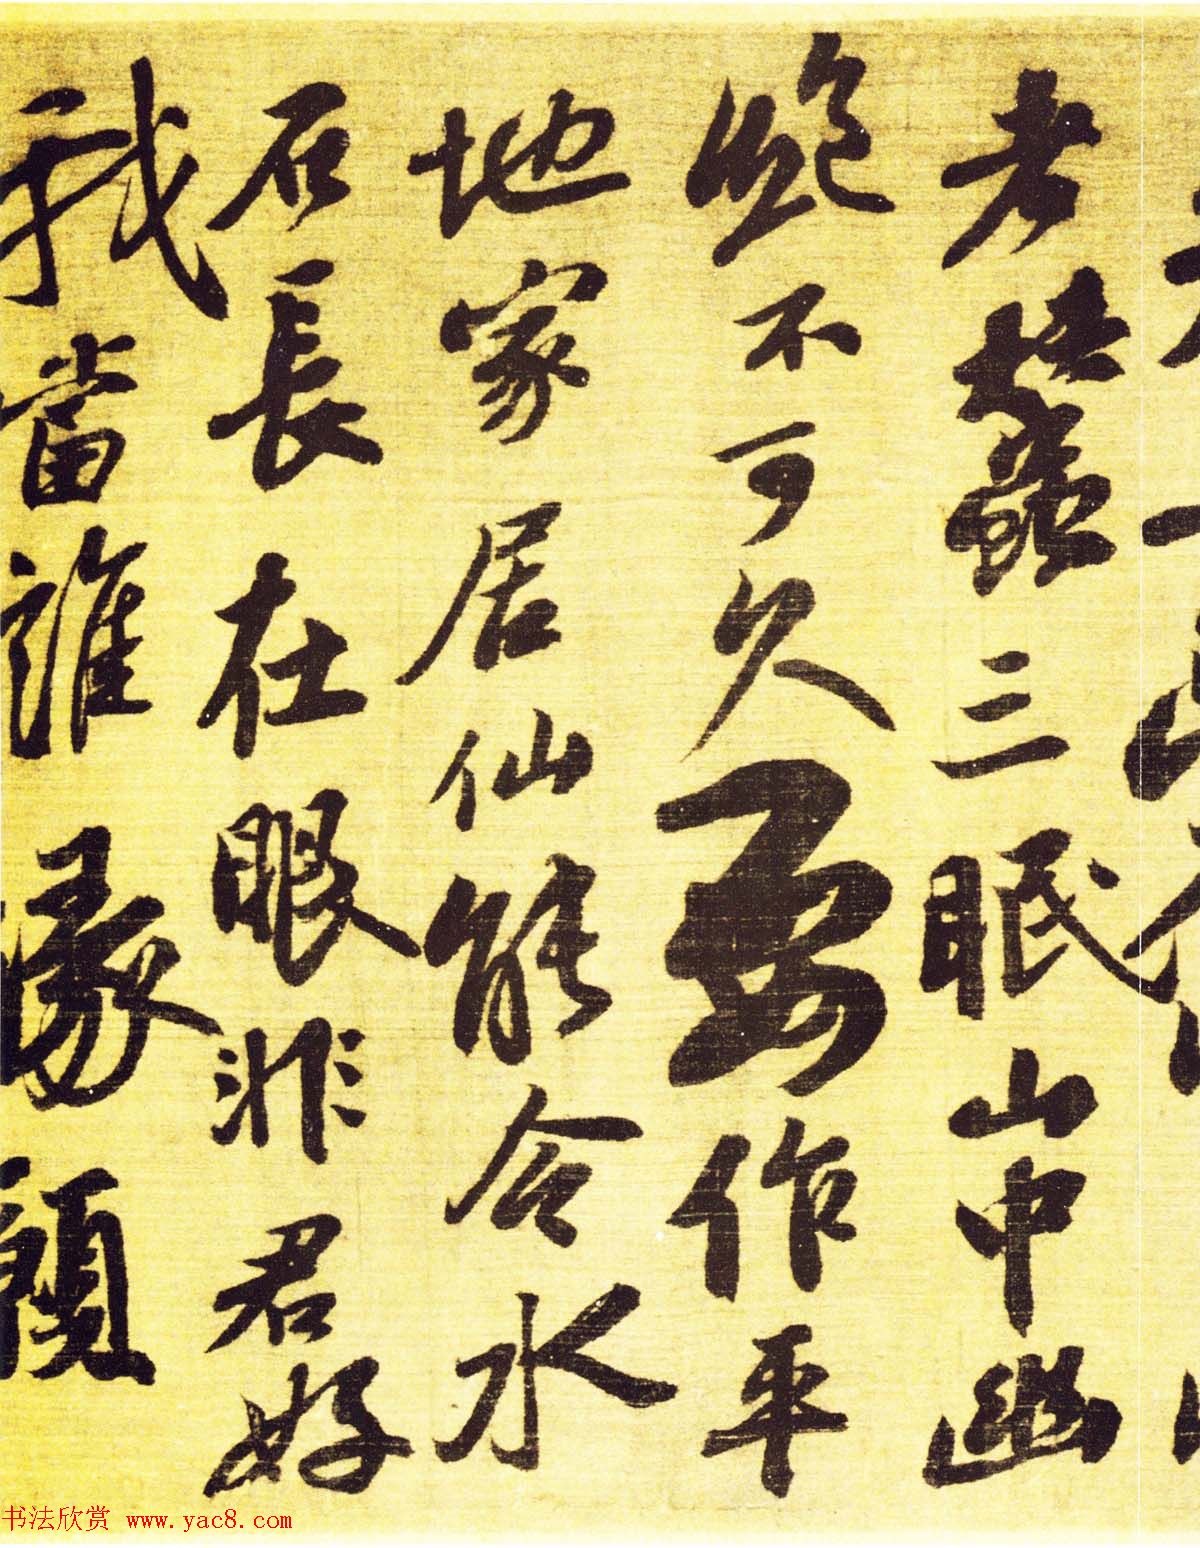 老蠶三眠山中幽
絶不可久要作平
地家居仙能令水
石長在眼非君好
我當誰緣願
书法欣赏 www.yac8.com